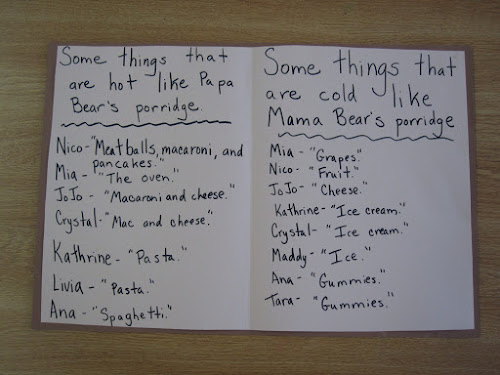 Some things that
are hot like Papa
Bear's porridge.
Nico-"Meatballs, macaroni, and
pancakes."
Mia - "The oven."
JoJo - "Macaroni and cheese."
Crystal-"Mac and cheese."
Kathrine - "Pasta."
Livia - "Pasta."
Ana - "Spaghetti."
Some things that
are cold like
Mama Bear's porridge
Mia - "Grapes."
Nico - "Fruit."
JoJo- "Cheese."
Kathrine - "Ice cream."
Crystal- "Ice cream."
Maddy - "Ice."
Ana - "Gummies."
Tara - "Gummies."